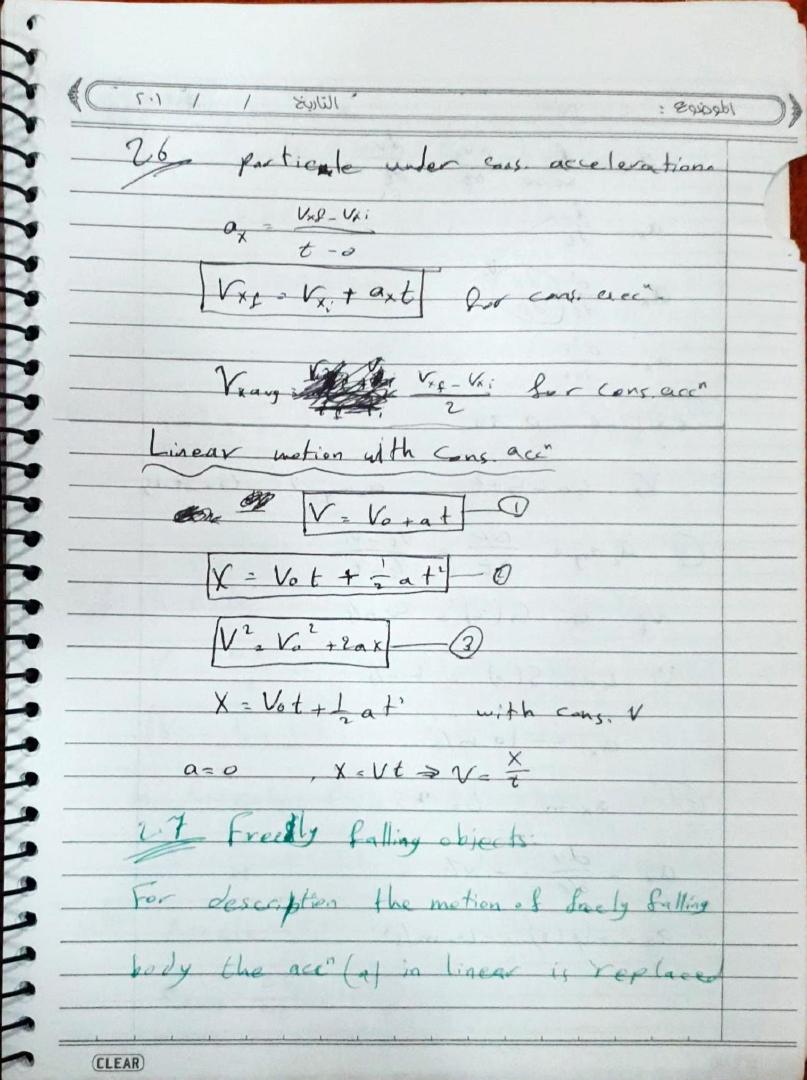 الموضوع : التاريخ / / ٢٠١
2.6 particle under cons. acceleration
a_x = (V_xf - V_xi) / (t - 0)
V_xf = V_xi + a_x t for cons. accⁿ
V_x avg = (V_xf - V_xi) / 2 for cons. accⁿ
Linear motion with cons. accⁿ
V = V₀ + at ①
X = V₀t + ½ at² ②
V² = V₀² + 2ax ③
X = V₀t + ½ at² with cons. V
a = 0 , X = Vt ⇒ V = X/t
2.7 Freely falling objects:
For description the motion of freely falling
body the accⁿ (a) in linear is replaced
CLEAR